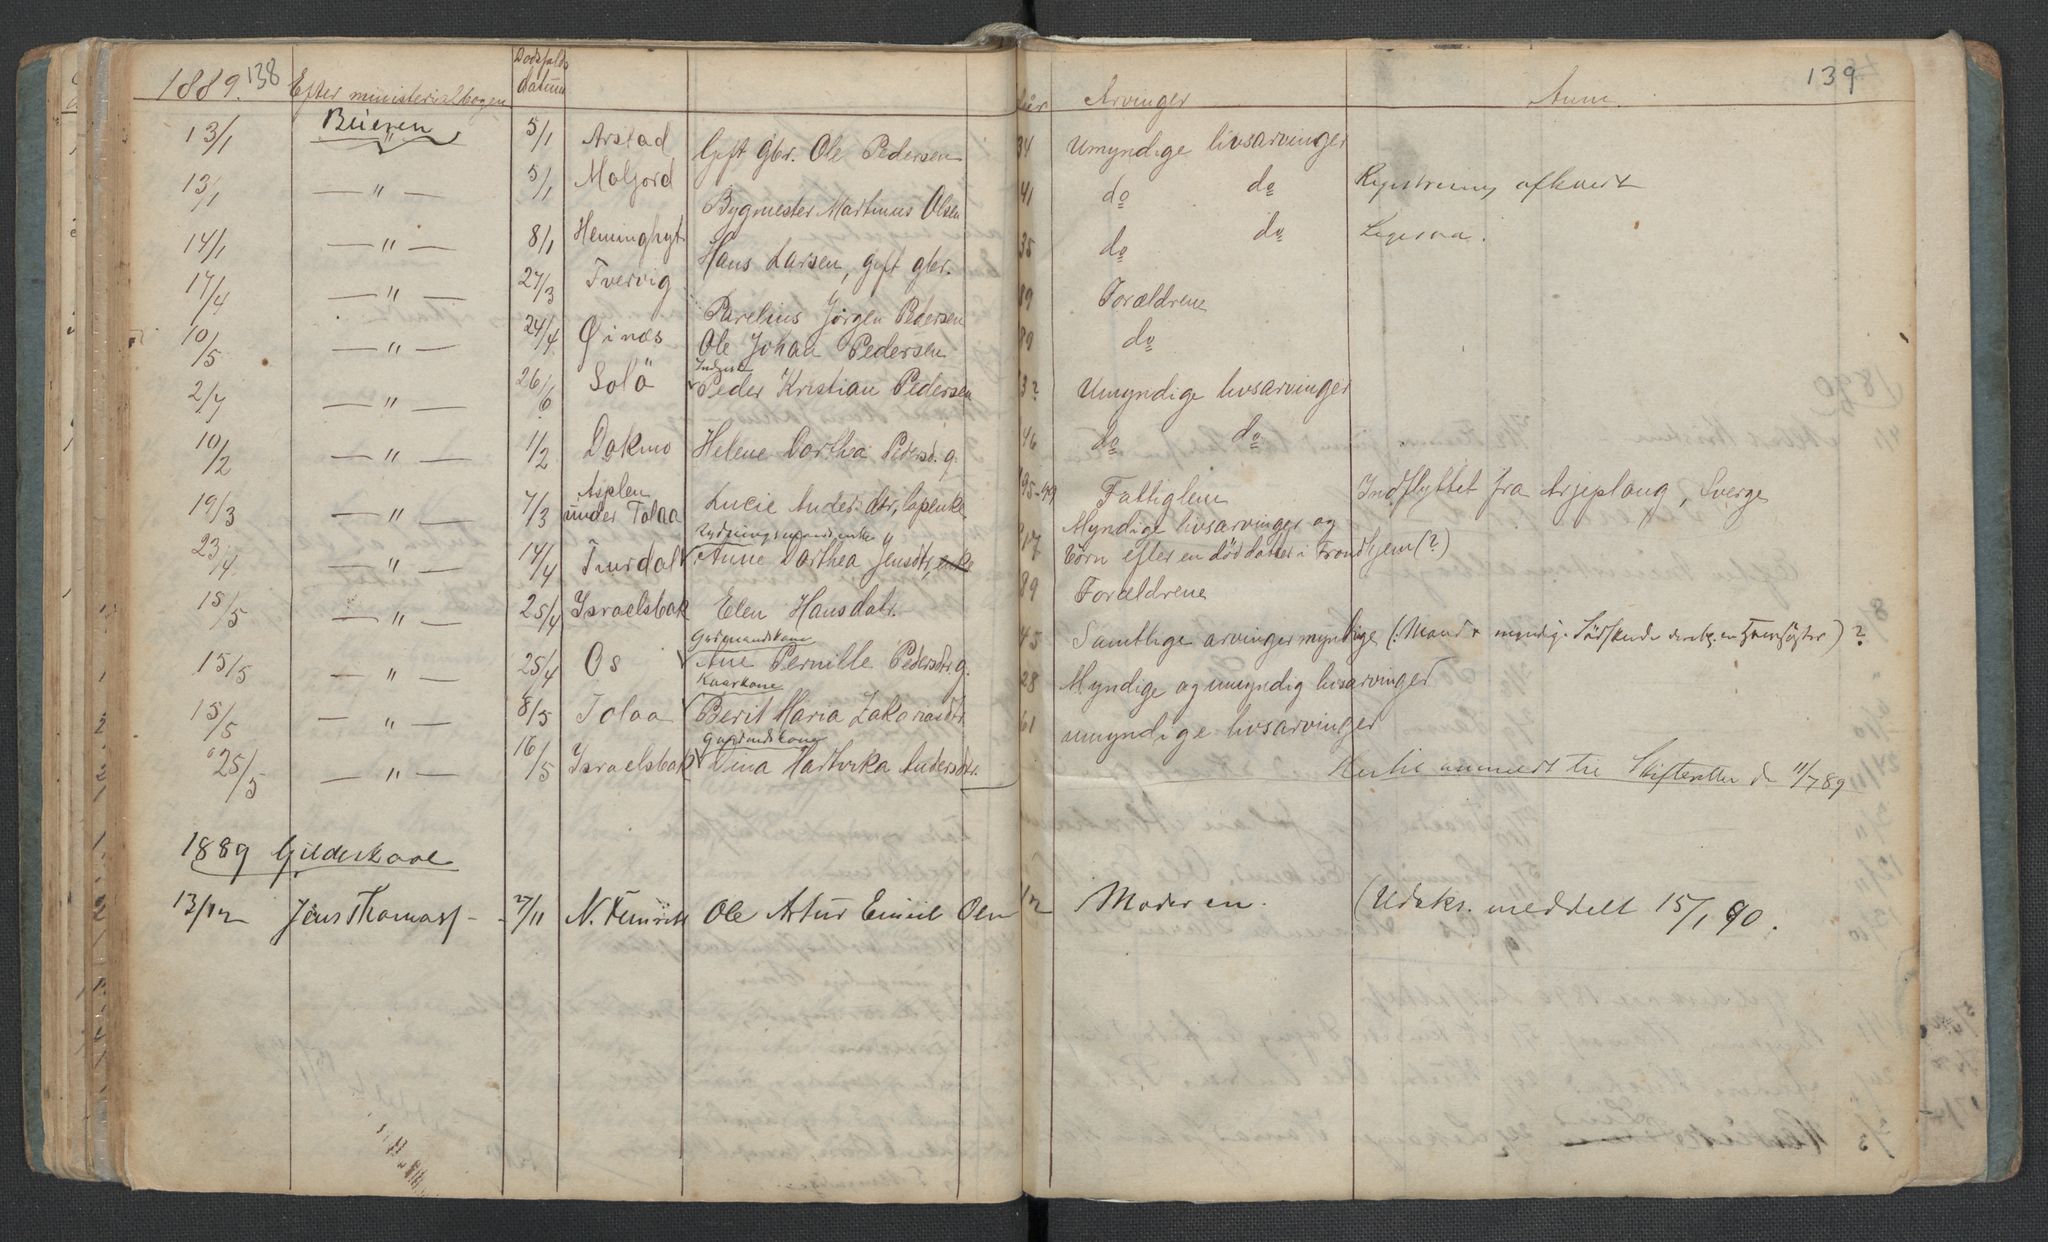 1889. 138 Efter ministerialbogen Dødsfalds datum Arvinger Anm. 139
Beieren
13/1 — " — 5/1 Arstad Gift gbr. Ole Pedersen 34 Umyndige livsarvinger
13/1 — " — 5/1 Moljord Bygmester Martinus Olsen 41 do do Registrering afholdt
14/1 — " — 8/1 Heminghyt Hans Larsen, gift gbr. 35 do do Ligesaa.
17/4 — " — 27/3 Tvervig Parelius Jørgen Pedersen 89 Forældrene
10/5 — " — 24/4 Øinæs Ole Johan Pedersen 89 do
Inderst
2/7 — " — 26/6 Solø Peder Kristian Pedersen 32 Umyndige livsarvinger
10/2 — " — 1/2 Dokmo Helene Dorthea Pedersd. g. 46 do do
19/3 — " — 7/3 Asplen under Tolaa Lucie Andersdtr, lapenke 95-99 Fattiglem Indflyttet fra Arjeplaug, Sverge
Rydningsmandsenke Myndige livsarvinger og
23/4 — " — 14/4 Tverdal Anne Dorthea Jensdtr, enke 17 børn efter en død datter i Trondhjem (?)
15/5 — " — 25/4 Israelsbak Elen Hansdatr. 89 Forældrene
Gardmandskone
15/5 — " — 25/4 Os Ane Pernille Pedersdtr g. 45 Samtlige arvinger myndige (: Mand & myndige Sødskende :) ?
Kaarkone
15/5 — " — 8/5 Tolaa Berit Maria Zakariasdtr. 28 Myndige og umyndig livsarvinger
Gardmandskone
25/5 — " — 16/5 Israelsbak Dina Hartvika Andersdtr. 61 umyndige livsarvinger
anmeldt til Skifteretten d 11/7 89
1889 Gildeskaal
13/12 Jens Thomass - 27/11 N. Ole Artur Emil Olsn 12 Moderen. (Udskr. meddelt 15/1 90.